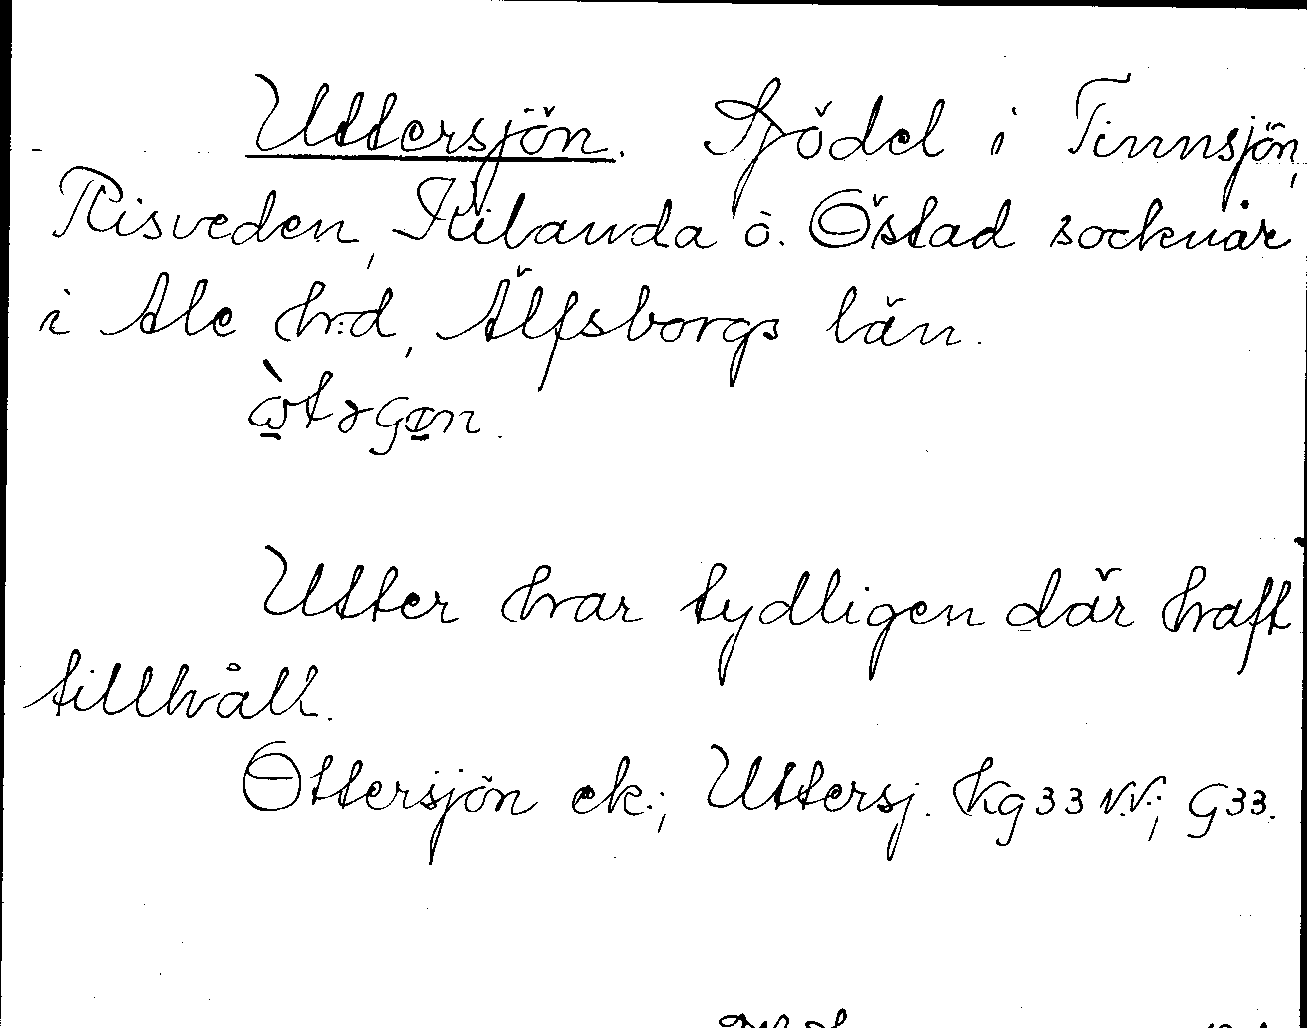 Uttersjön. Sjödel i Tinnsjön,
Risveden, Kilanda o. Östad socknar
i Ale h:d, Älfsborgs län.
Utter har tydligen där haft
tillhåll.
Ottersjön ek.; Uttersj. Kg 33 NV.; G 33.